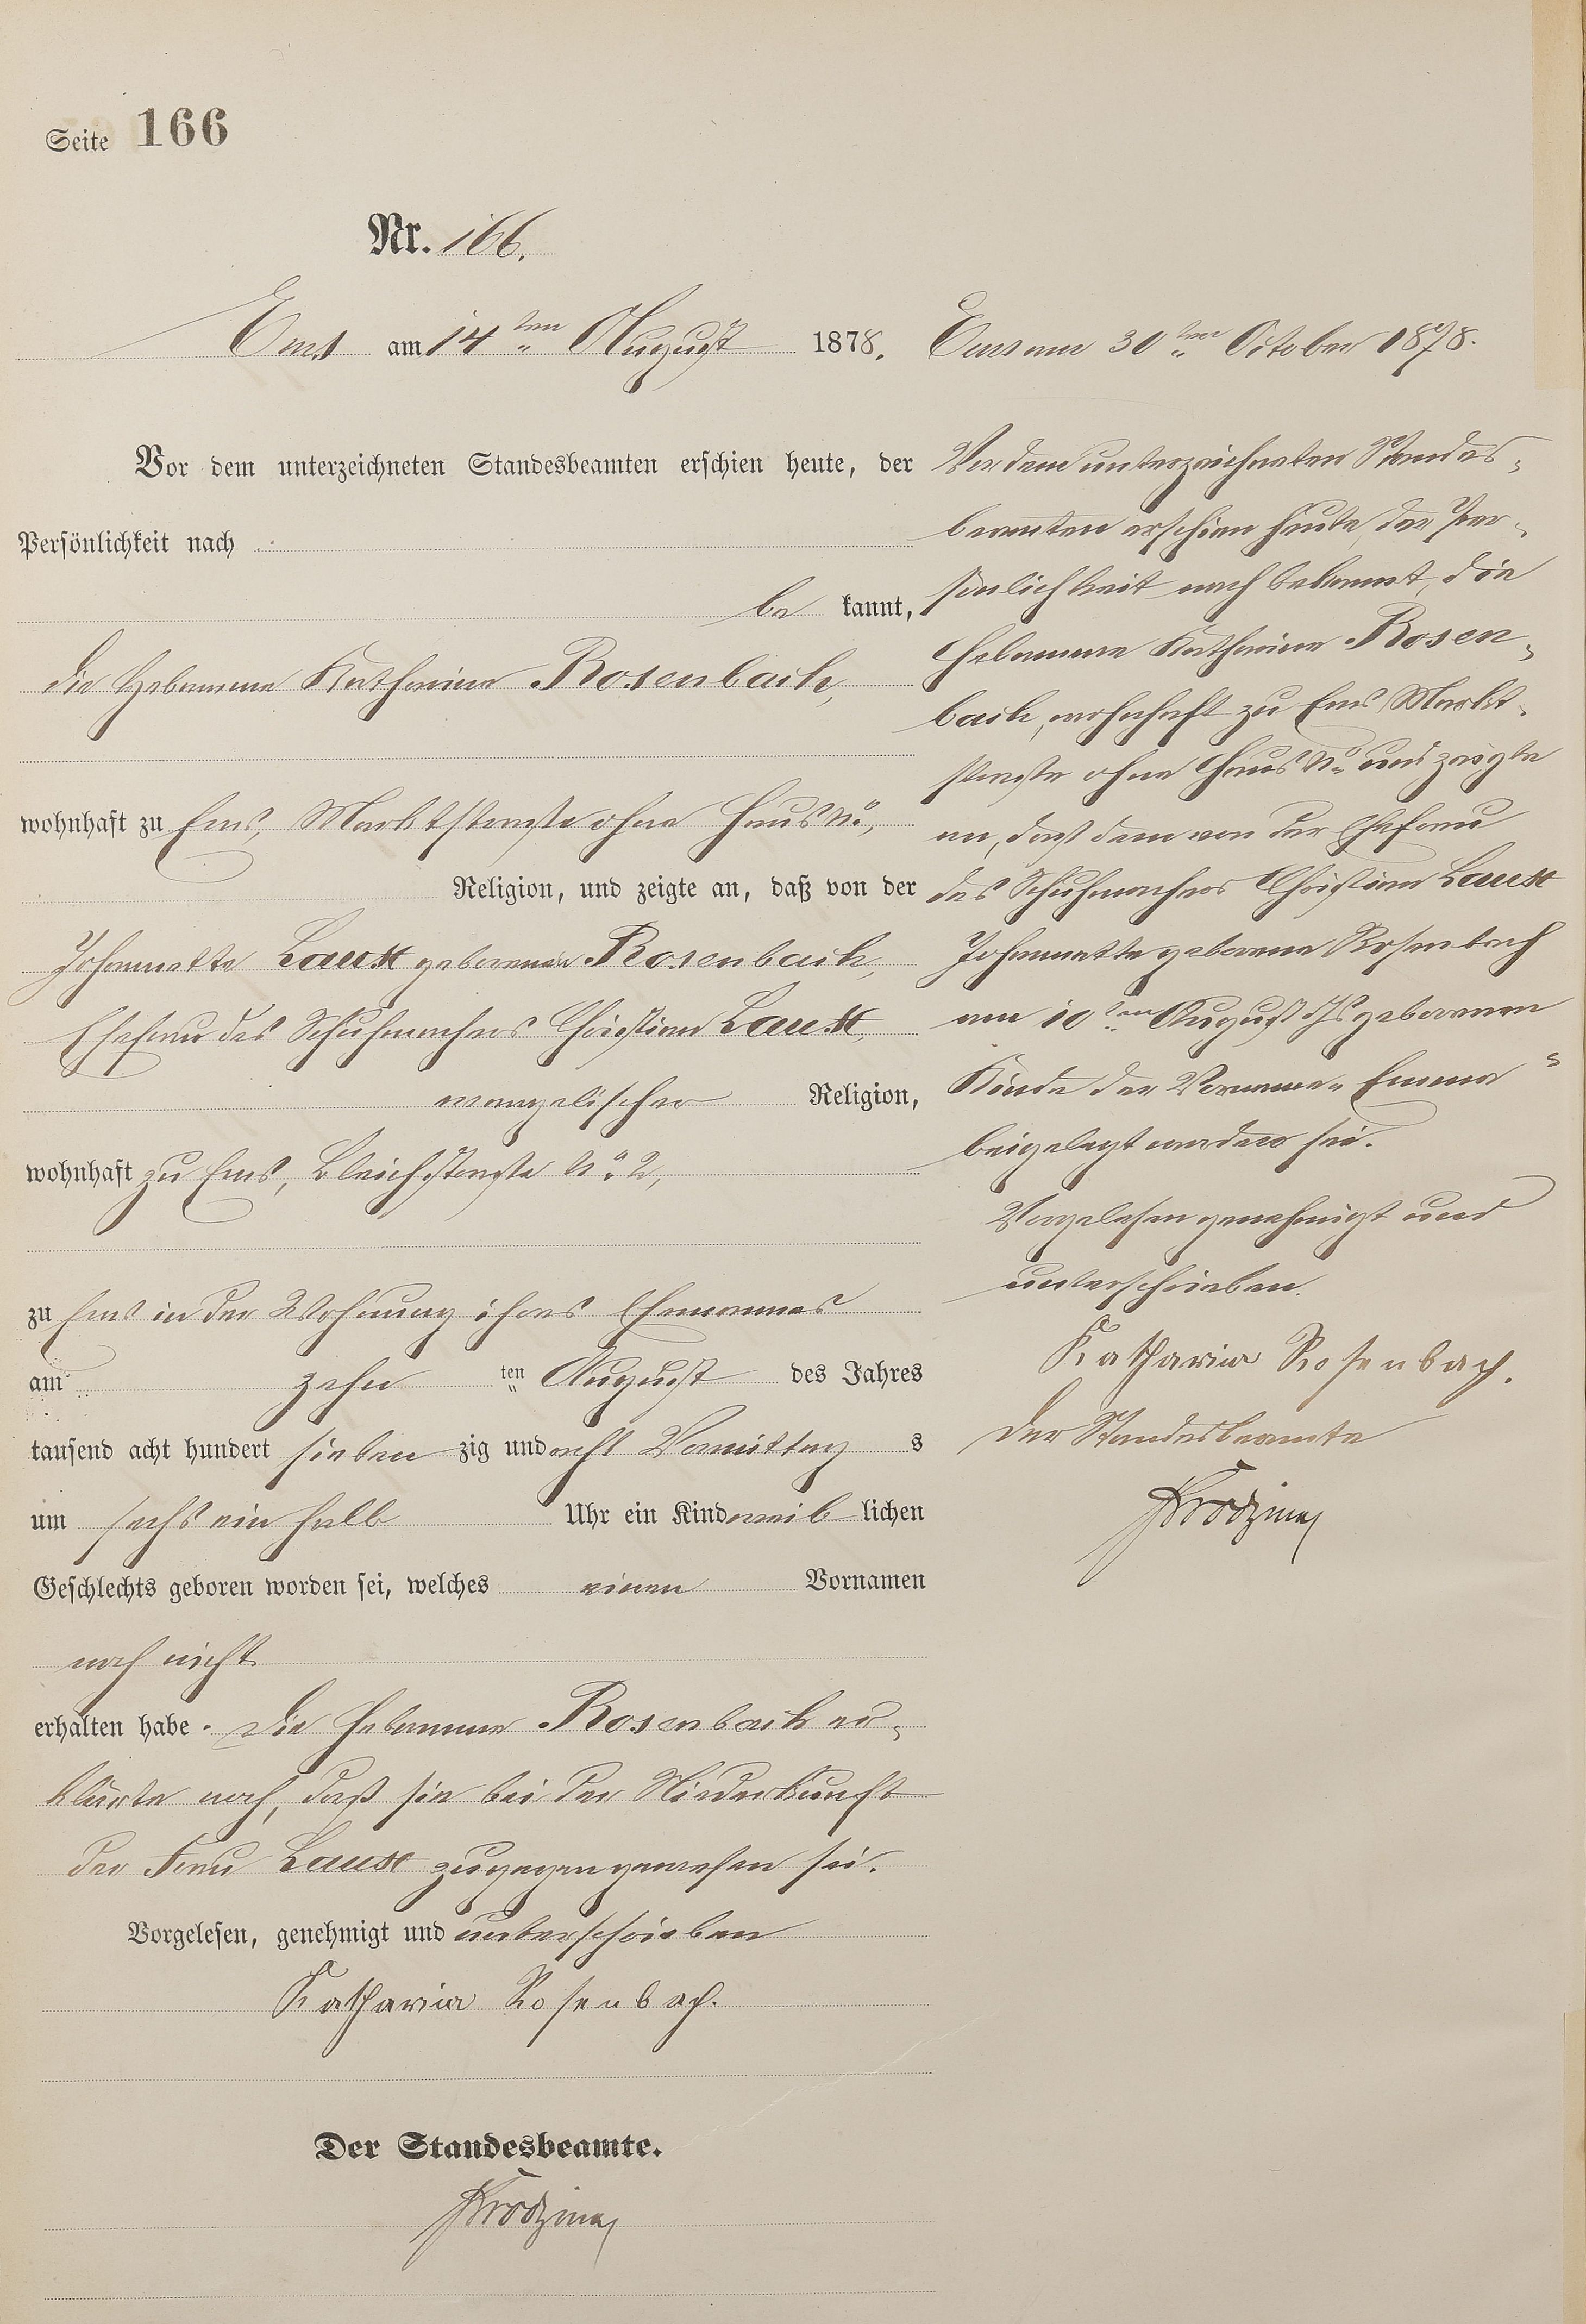 Seite 166
Nr. 166.
Ems am 14ten August 1878.
Vor dem unterzeichneten Standesbeamten erschien heute, der
Persönlichkeit nach
be kannt,
die Hebamme Katharina Rosenbach,
wohnhaft zu Ems, Marktstraße ohne Haus No,
Religion, und zeigte an, daß von der
Johannette Laux geborenen Rosenbach,
Ehefrau des Schuhmachers Christian Laux,
evangelischer Religion,
wohnhaft zu Ems, Bleichstraße No 2,
zu Ems in der Wohnung ihres Ehemannes
am zehn ten August des Jahres
tausend acht hundert sieben zig und acht Vormittag s
um sechs ein halb Uhr ein Kind weib lichen
Geschlechts geboren worden sei, welches einen Vornamen
noch nicht
erhalten habe. Die Hebamme Rosenbach er-
klärte noch, daß sie bei der Niederkunft
der Frau Laux zugegen gewesen sei.
Vorgelesen, genehmigt und unterschrieben
Katharina Rosenbach.
Der Standesbeamte.
Ems am 30ten October 1878.
Vor dem unterzeichneten Standes-
beamten erschien heute, der Per-
sönlichkeit nach bekannt, die
Hebamme Katharina Rosen-
bach, wohnhaft zu Ems Markt-
straße ohne Haus No und zeigte
an, daß dem von der Ehefrau
des Schuhmachers Christian Laux
Johannette geborene Rosenbach
am 10ten August Js geborenen
Kinde der Vorname „Emma"
beigelegt worden sei.
Vorgelesen genehmigt und
unterschrieben.
Katharina Rosenbach.
Der Standesbeamte